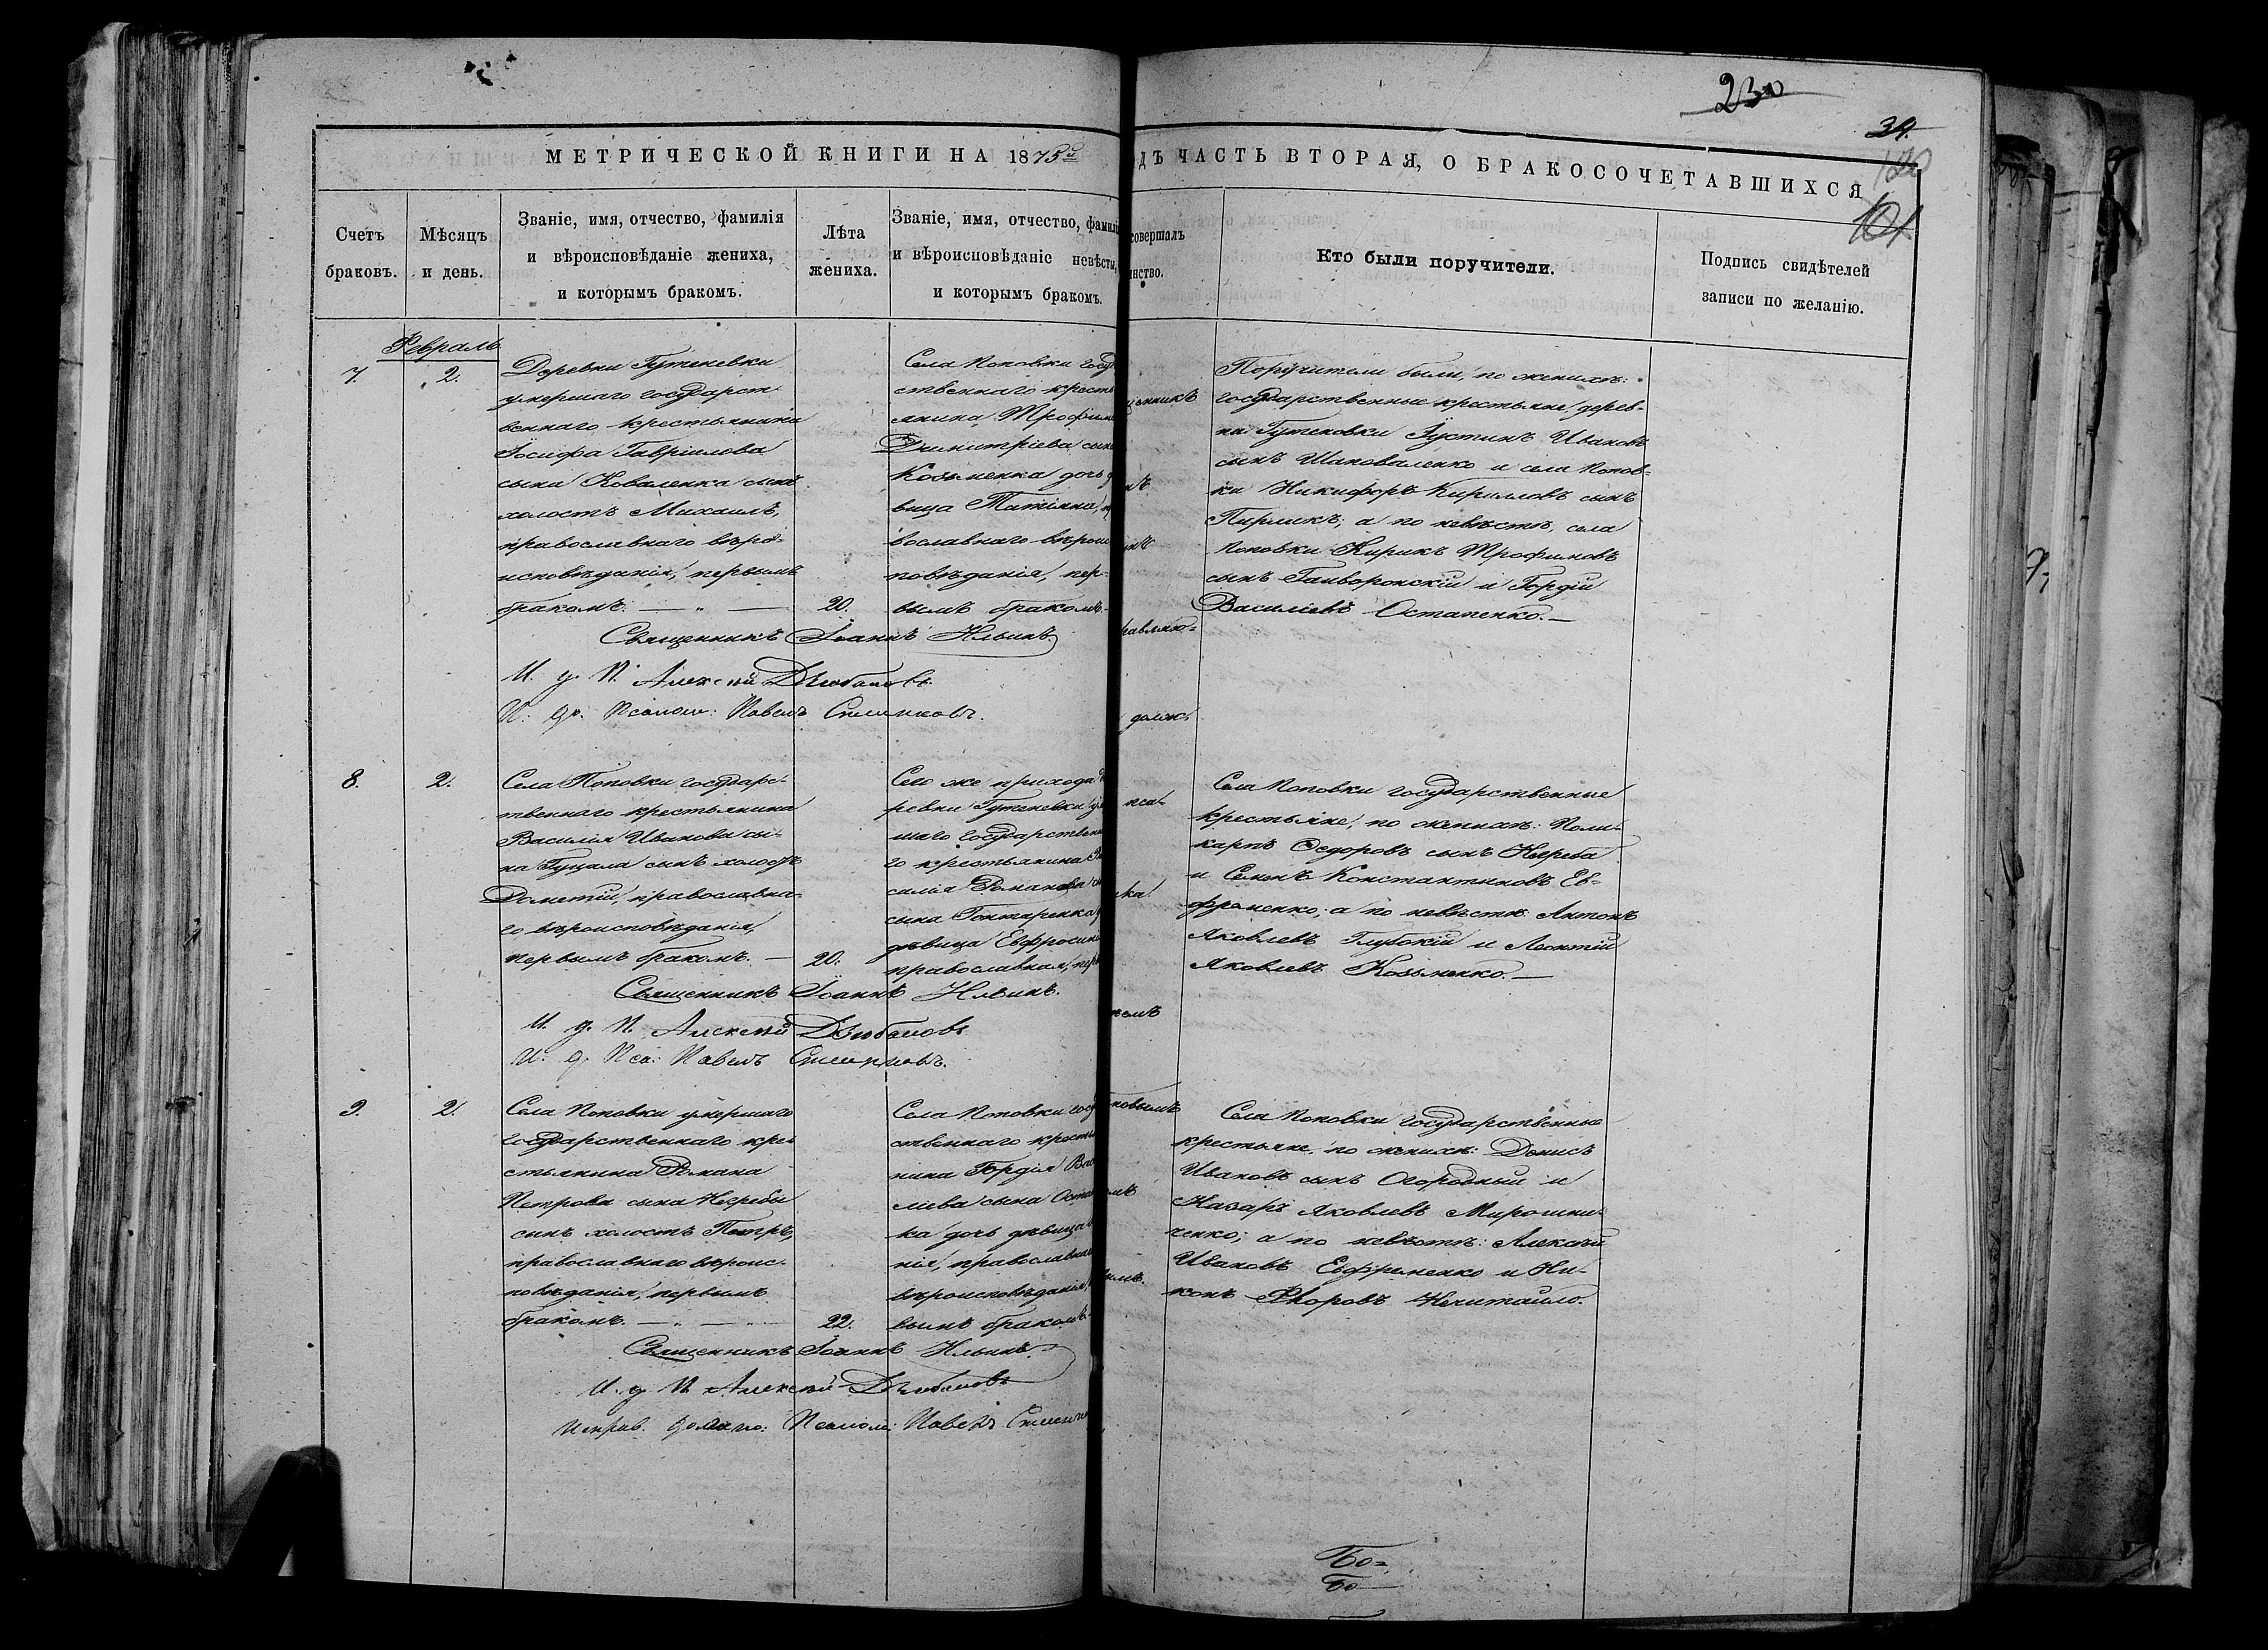 230
39.
120
101
МЕТРИЧЕСКОЙ КНИГИ НА 1875й
ДЪ ЧАСТЬ ВТОРАЯ, О БРАКОСОЧЕТАВШИХСЯ
Счетъ
браковъ.
Мѣсяцъ
и день.
Званіе, имя, отчество, фамилія
и вѣроисповѣданіе жениха,
и которымъ бракомъ.
Лѣта
жениха.
Званіе, имя, отчество, фамилі
и вѣроисповѣданіе невѣсты,
и которымъ бракомъ.
совершалъ
инство.
Кто были поручители.
Подпись свидѣтелей
записи по желанію.
Февраль
7.
2.
Деревни Гутеневки
умершаго государст-
веннаго крестьянина
Іосифа Гавріилова
сына Коваленка сынъ
холостъ Михаилъ,
православнаго вѣро-
исповѣданія, первымъ
бракомъ. — „ —
20.
Села Поповки госуд
ственнаго кресть
янина Трофима
Димитріева сына
Козьменка дочь д
вица Татіана, пр
вославнаго вѣроис
повѣданія, пер-
вымъ бракомъ.—
щенникъ
нъ
равляю-
долж.
Поручители были, по женихѣ:
государственные крестьяне, дерев-
ни Гутеновки Іустинъ Ивановъ
сынъ Шаповаленко и села Попов-
ки Никифоръ Кирилловъ сынъ
Пирликъ; а по невѣстѣ, села
Поповки Кирикъ Трофимовъ
сынъ Гайворонскій и Гордій
Василіевъ Остапенко.—
Священникъ Іоаннъ Ильинъ.
И. д. П. Алексей Дзюбановъ.
И. до. Псалом: Павелъ
8.
2.
Села Поповки государс-
твеннаго крестьянина
Василія Иванова сы-
на Гуцала сынъ холостъ
Дометій, православна-
го вѣроисповѣданія,
первымъ бракомъ.—
20.
Сего же прихода д
ревни Гутеневки ум
шаго государственна
го крестьянина Ва
силія Романова
сына Гонтаренка д
дѣвица Евфросинія
православная, перв
пса-
ка
Села Поповки государственные
крестьяне, по женихѣ: Поли-
карпъ Ѳедоровъ сынъ Негреба
и Семенъ Константиновъ Ев-
фременко; а по невѣстѣ: Антонъ
Яковлевъ Глубокій и Леонтій
Яковлевъ Козьменко.—
Священникъ Іоаннъ Ильинъ.
И. д. П. Алексей Дзюбановъ
И. д. Пса: Павелъ
9.
2.
Села Поповки умершаго
государственнаго кре-
стьянина Романа
Петрова сына Негребы
сынъ холостъ Петръ,
православнаго вѣроис-
повѣданія, первымъ
бракомъ. — „ —
22.
Села Поповки госуд
ственнаго крестья
нина Гордія Васи
лиева сына Остапен
ка дочь дѣвица
нія, православнаго
вѣроисповѣданія,
вымъ бракомъ.
новымъ
Села Поповки государственные
крестьяне, по женихѣ: Денисъ
Ивановъ сынъ Огородный и
Назаръ Яковлевъ Мирошни-
ченко; а по невѣстѣ: Алексѣй
Ивановъ Евфременко и Ни-
конъ Ѳедоровъ Нечитайло.
Священникъ Іоаннъ Ильинъ.
И. д. П. Алексей Дзюбановъ
Исправ. должно: Псалом: Павелъ
Бо=
Бо